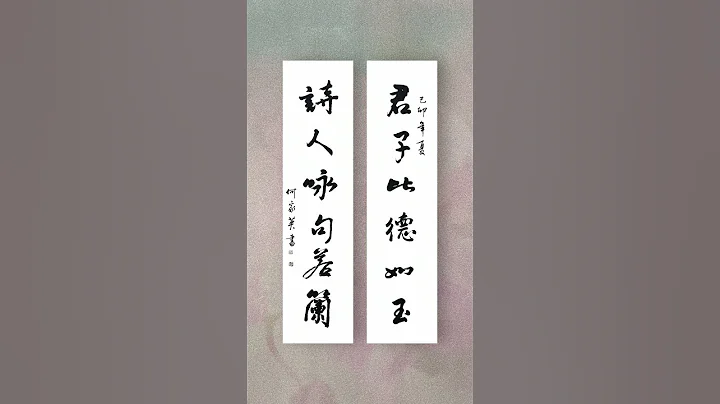 君子比德如玉
己卯年夏
詩人咏句若蘭
何家英書